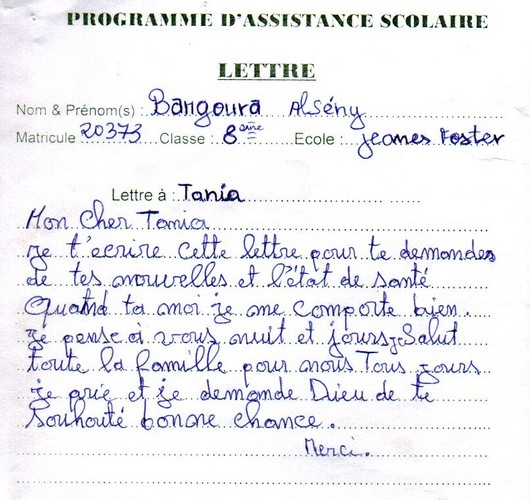 PROGRAMME D'ASSISTANCE SCOLAIRE
LETTRE
Nom & Prénom(s) : Bangoura Alsény
Matricule 20373 Classe : 8ème Ecole : Jeames Foster
Lettre à : Tania
Mon Cher Tania
je t'écrire cette lettre pour te demandes
de tes nouvelles et l'état de santé
Quand ta moi je me comporte bien.
je pense à vous nuit et jours je Salut
toute la famille pour nous Tous jours
je prie et je demande Dieu de te
Souhouté bonne chance.
Merci.